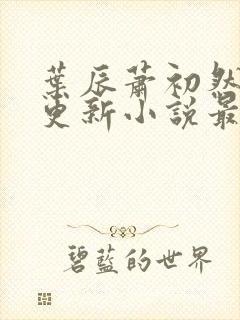 葉辰蕭初然
更新小說最
碧藍的世界